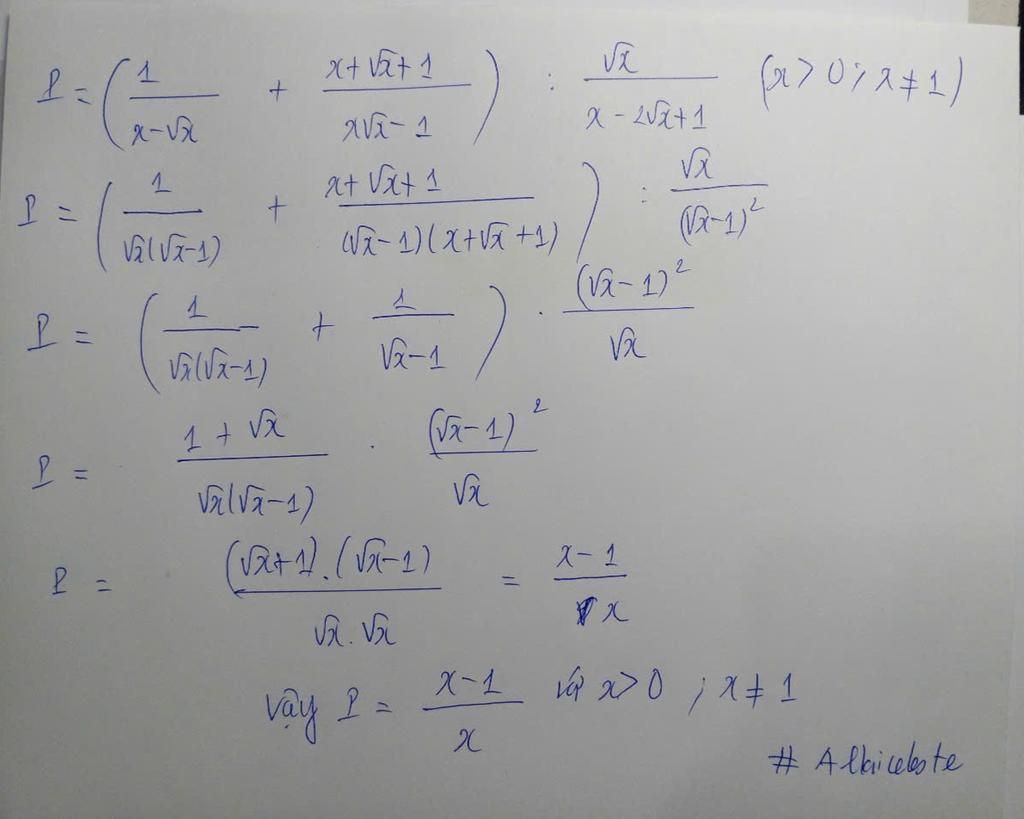 P = ( 1/(x-√x) + (x+√x+1)/(x√x-1) ) : √x/(x-2√x+1) (x>0; x≠1)
P = ( 1/(√x(√x-1)) + (x+√x+1)/((√x-1)(x+√x+1)) ) : √x/(√x-1)²
P = ( 1/(√x(√x-1)) + 1/(√x-1) ) . (√x-1)²/√x
P = (1+√x)/(√x(√x-1)) . (√x-1)²/√x
P = (√x+1).(√x-1)/(√x.√x) = (x-1)/x
Vậy P = (x-1)/x với x>0 ; x≠1
# Albiceleste